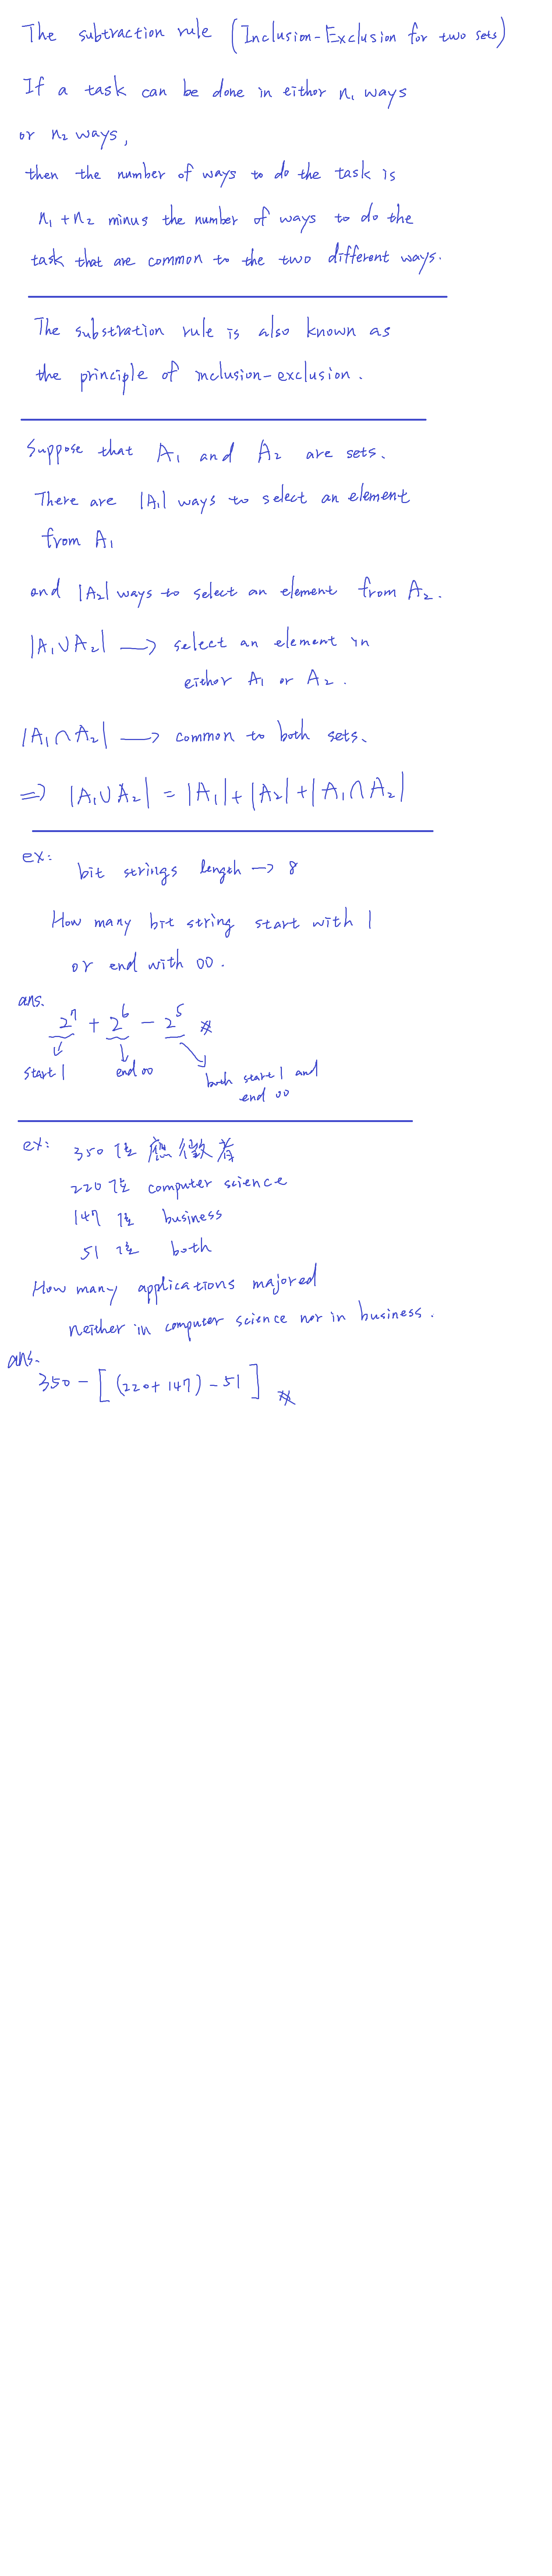 The subtraction rule (Inclusion-Exclusion for two sets)
If a task can be done in either n₁ ways
or n₂ ways,
then the number of ways to do the task is
n₁ + n₂ minus the number of ways to do the
task that are common to the two different ways.
The substration rule is also known as
the principle of inclusion-exclusion.
Suppose that A₁ and A₂ are sets.
There are |A₁| ways to select an element
from A₁
and |A₂| ways to select an element from A₂.
|A₁∪A₂| → select an element in
either A₁ or A₂.
|A₁∩A₂| → common to both sets.
⇒ |A₁∪A₂| = |A₁| + |A₂| + |A₁∩A₂|
ex:
bit strings length → 8
How many bit string start with 1
or end with 00.
ans.
2⁷ + 2⁶ - 2⁵ ※
start 1 end 00 both start 1 and
end 00
ex: 350 個 應徵者
220 個 computer science
147 個 business
51 個 both
How many applications majored
neither in computer science nor in business.
ans.
350 - [(220 + 147) - 51] ※